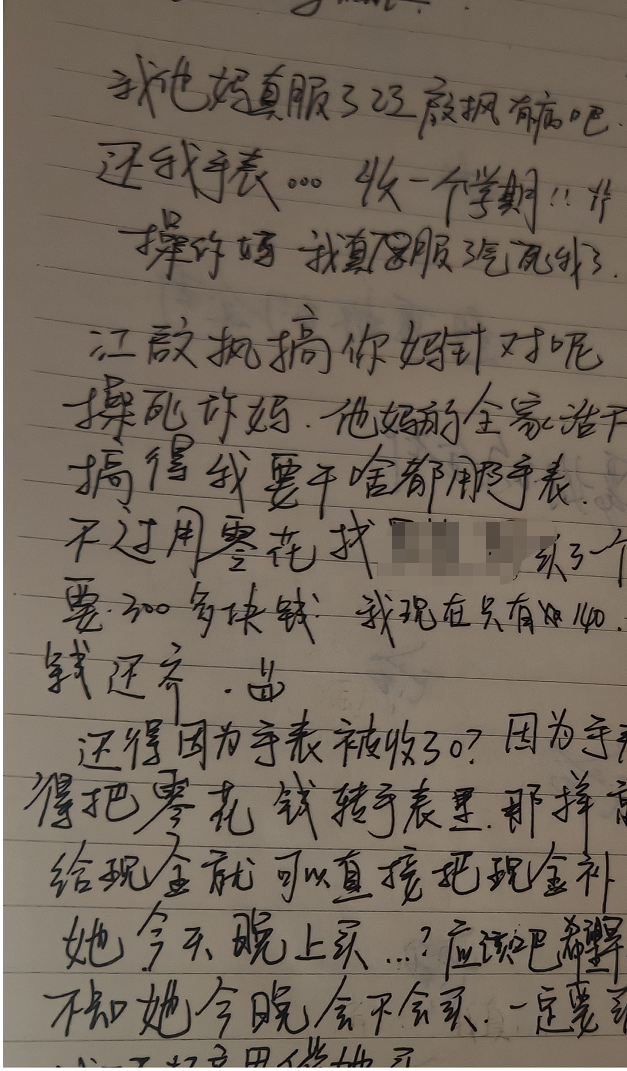 我他妈真服了江啟枫有病吧.
还我手表... 收一个学期!!
操你妈 我真服了气死我了.
江啟枫搞你妈针对呢
操死你妈.他妈的全家
搞得我要干啥都用手表.
不过用零花找 买了一个
要300多块钱. 我现在只有 140.
钱还齐.
还得因为手表被收了o? 因为手
得把零花钱转手表里.那样
给现金就可以直接把现金补
她今天晚上买...?应该吧希望
不知她今晚会不会买.一定要买